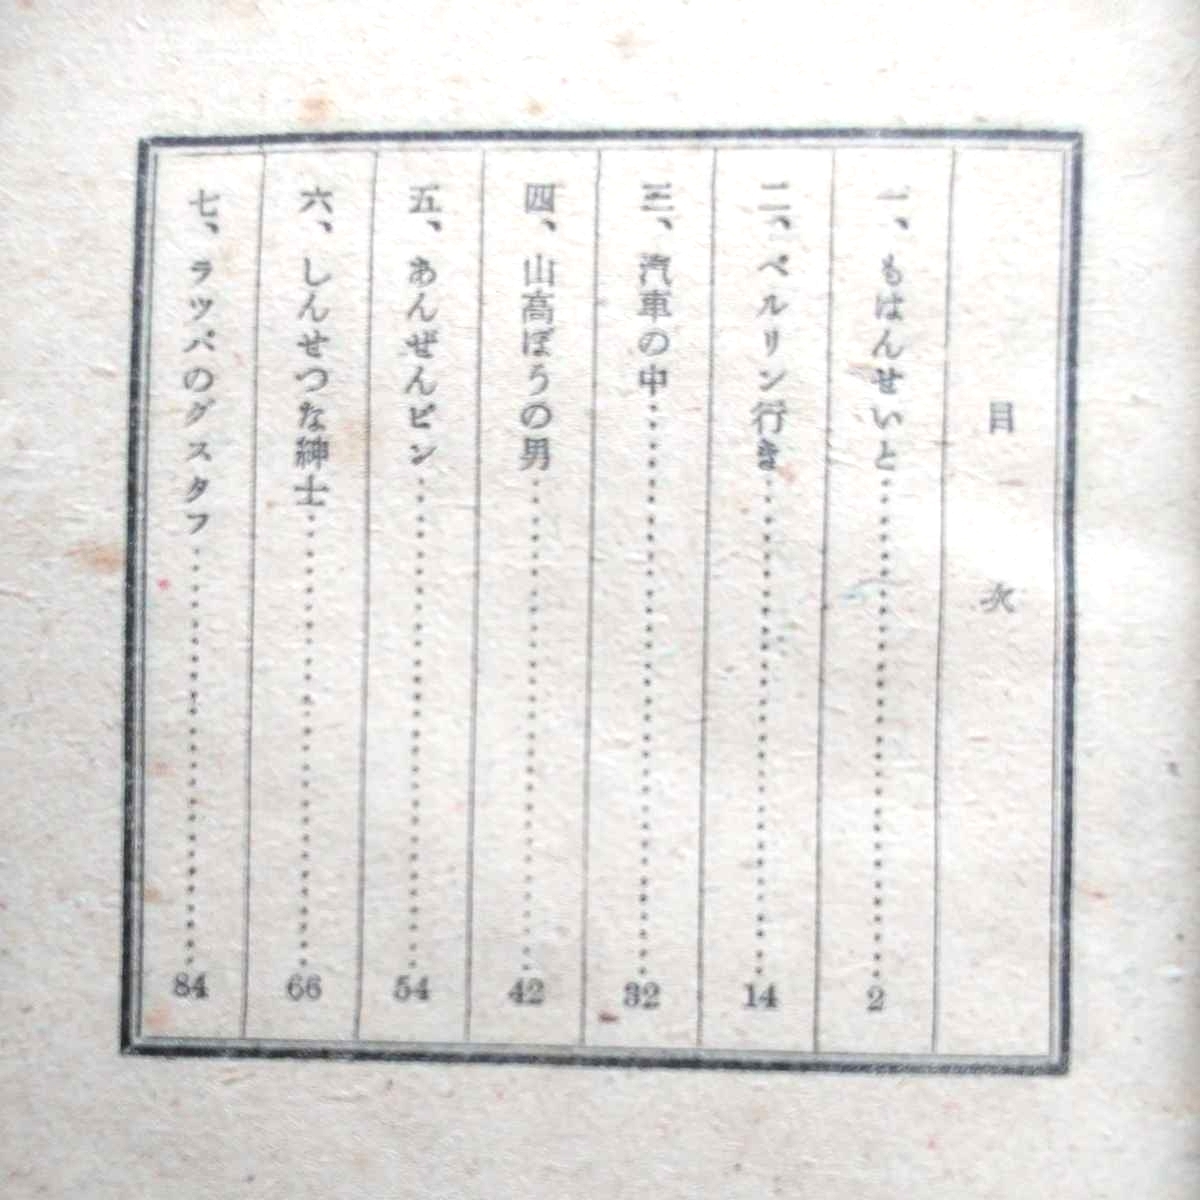 目次
一、もはんせいと……2
二、ベルリン行き……14
三、汽車の中……32
四、山高ぼうの男……42
五、あんぜんピン……54
六、しんせつな紳士……66
七、ラツパのグスタフ……84